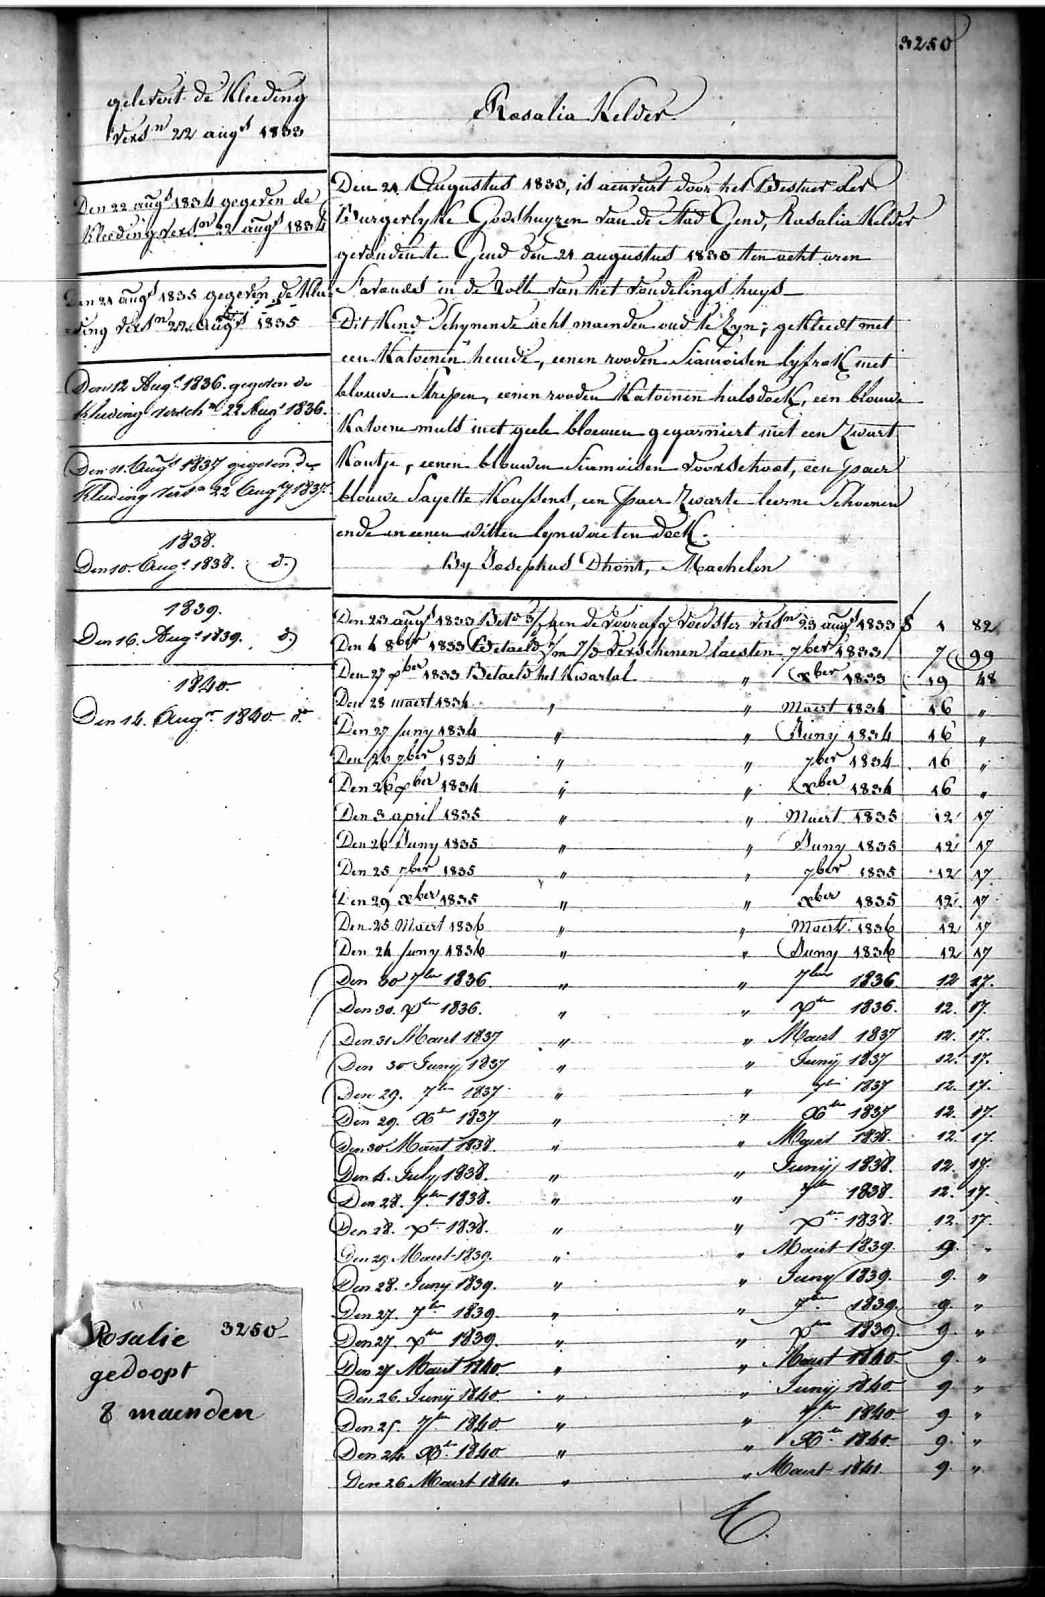 3250
gelevert de Kleeding
versn 22 augt 1833
Rosalia Kelder
Den 22 augt 1834 gegeven de
Kleeding versn 22 augt 1834
Den 21 augt 1835 gegeven de Klee
ding versn 22 augt 1835
Den 12 Augt 1836. gegeven de
Kleeding versch 22 Augt 1836.
Den 11. Augt 1837 gegeven de
Kleeding versn 22 Augt 1837.
1838.
Den 10. Augt 1838. d.)
1839.
Den 16. Augt 1839. d.)
1840.
Den 14. Augt 1840 d.
Den 21 Augustus 1833, is aenveirt door het Bestuer der
Burgerlyke Godshuyzen van de Stad Gend, Rosalia Kelder
gevonden te Gend den 21 augustus 1833 ten acht uren
S'avonds in de rolle van het vondelings huys
Dit Kind Schynende acht maenden oud te Zyn; gekleedt met
een Katoenen hemde, eenen rooden Siamoisen lyfrok met
blouwe strepen, eenen rooden Katoenen halsdoek, een blouwe
Katoene muts met geele bloemen gegarniert met een Zwart
Kantje, eenen blouwen Siamoisen voorschoot, een paer
blouwe Sayette Koussens, een paer Zwarte leerne Schoenen
ende in eenen witten lynwaeten doek.
By Josephus Dhont, Machelen
Den 23 augt 1833 Bet de voorafg Voedster versn 23 augt 1833 1 82
Den 4 8ber 1833 Betaeld verschenen laesten 7ber 1833 7 99
Den 27 xber 1833 Betaeld het Kwartal " xber 1833 19 48
Den 28 maert 1834 " " Maert 1834 16 "
Den 27 Juny 1834 " " Juny 1834 16 "
Den 26 7ber 1834 " " 7ber 1834 16 "
Den 26 xber 1834 " " xber 1834 16 "
Den 3 april 1835 " " Maert 1835 12 17
Den 26 Juny 1835 " " Juny 1835 12 17
Den 25 7ber 1835 " " 7ber 1835 12 17.
Den 29 xber 1835 " " xber 1835 12 17
Den 25 Maert 1836 " " Maert 1836 12 17
Den 24 Juny 1836 " " Juny 1836 12 17
Den 30 7ber 1836. " " 7ber 1836. 12 17.
Den 30. xber 1836. " " xber 1836. 12. 17.
Den 31 Maert 1837 " " Maert 1837 12. 17.
Den 30 Junij 1837 " " Junij 1837 12. 17.
Den 29. 7ber 1837 " " 7ber 1837 12. 17.
Den 29. Xber 1837 " " Xber 1837 12. 17.
Den 30 Maert 1838. " " Maert 1838. 12. 17.
Den 4. July 1838. " " Junij 1838. 12. 17.
Den 28. 7ber 1838. " " 7ber 1838. 12. 17.
Den 28. xber 1838. " " xber 1838. 12. 17.
Den 29 Maert 1839. " " Maert 1839. 9. "
Den 28. Juny 1839. " " Juny 1839. 9. "
Den 27. 7ber 1839. " " 7ber 1839. 9. "
Den 27. xber 1839. " " xber 1839. 9. "
Den 27 Maert 1840. " " Maert 1840 9 "
Den 26. Junij 1840. " " Junij 1840 9 "
Den 25. 7ber 1840 " " 7ber 1840 9 "
Den 24. Xber 1840 " " Xber 1840 9. "
Den 26 Maert 1841. " " Maert 1841 9. "
Rosalie 3250
gedoopt
8 maenden